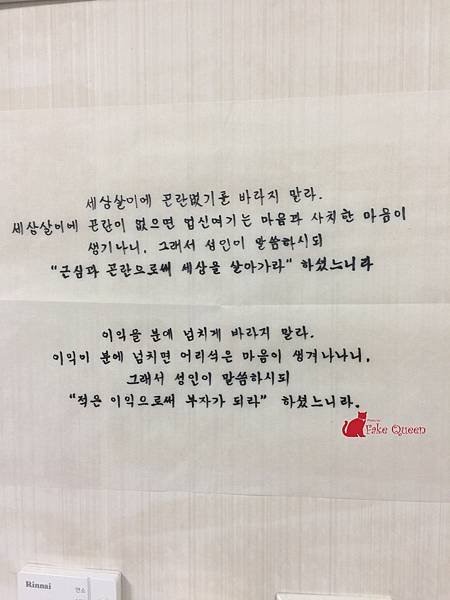 세상살이에 곤란없기를 바라지 말라.
세상살이에 곤란이 없으면 업신여기는 마음과 사치한 마음이
생기나니, 그래서 성인이 말씀하시되
"근심과 곤란으로써 세상을 살아가라" 하셨느니라
이익을 분에 넘치게 바라지 말라.
이익이 분에 넘치면 어리석은 마음이 생겨나나니,
그래서 성인이 말씀하시되
"적은 이익으로써 부자가 되라" 하셨느니라.
Fake Queen
Rinnai
연소